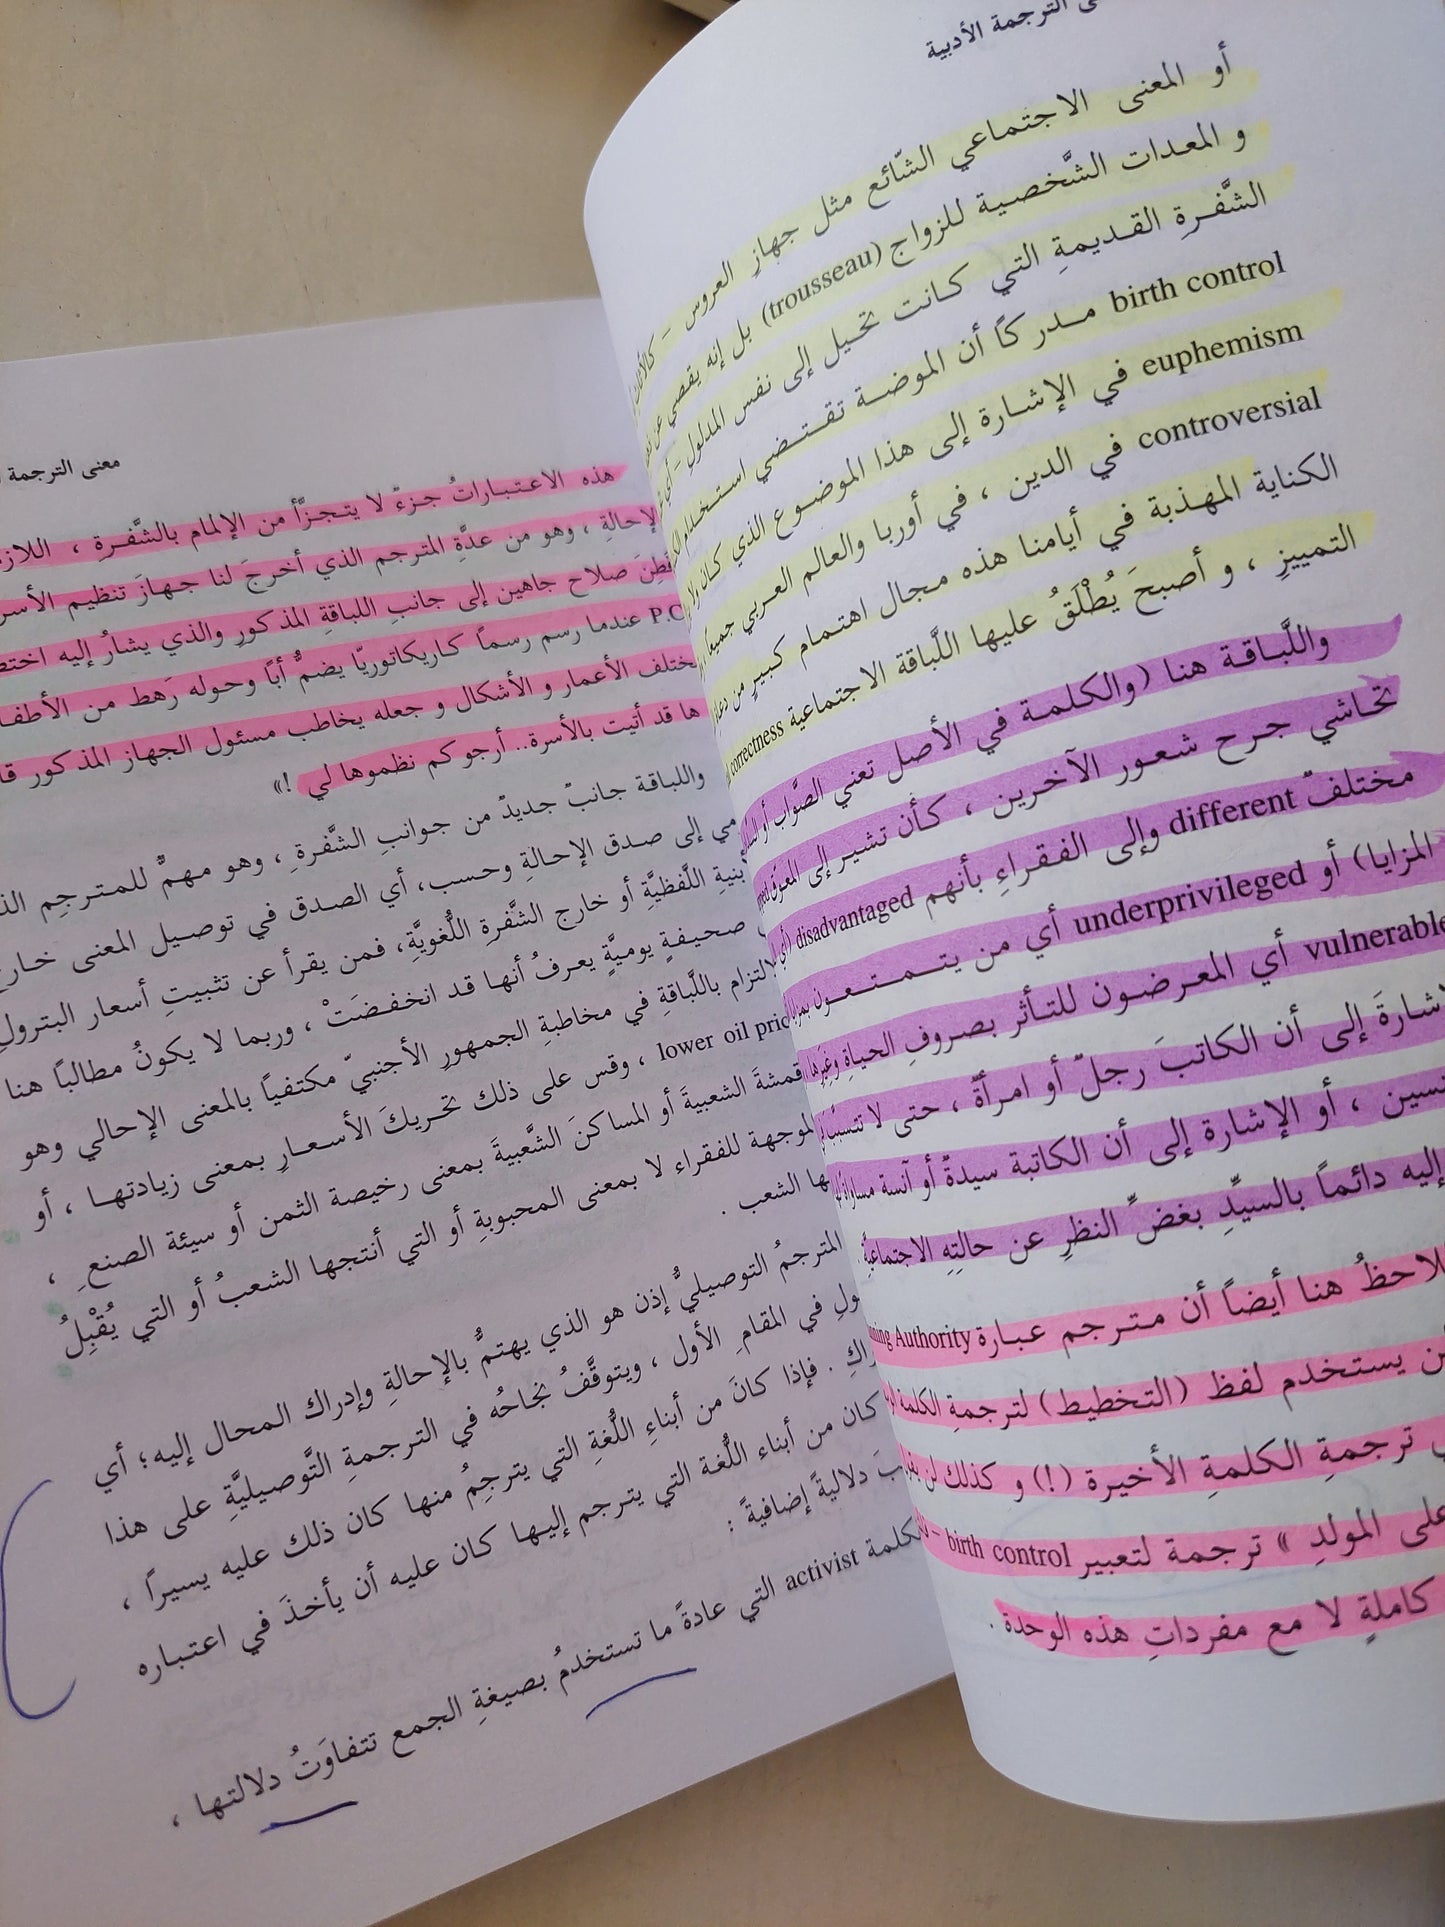 الترجمة الأدبية
أو المعنى الاجتماعي الشّائع مثل جهازِ العروس –
و المعدات الشَّخصية للزواج (trousseau) بل إنه يقصي عن
الشَّفرةِ القديمةِ التي كانت تحيل إلى نفس المدلول – أي
birth control مدركاً أن الموضة تقتضي استخدام
euphemism في الإشارة إلى هذا الموضوع الذي كان ولا
controversial في الدين ، في أوربا والعالم العربي جميعاً ،
الكناية المهذبة في أيامنا هذه مجال اهتمام كبيرٍ من
التمييزِ ، و أصبحَ يُطْلَقُ عليها اللَّباقة الاجتماعية correctness
واللَّباقة هنا (والكلمة في الأصل تعني الصَّواب أو
تحاشي جرح شعور الآخرين ، كأن تشير إلى المعوّق
مختلفٌ different وإلى الفقراءِ بأنهم disadvantaged
المزايا) أو underprivileged أي من يتمتعون
vulnerable أي المعرضون للتأثر بصروفِ الحياةِ وغِيَرِها
إلى أن الكاتبَ رجلٌ أو امرأةٌ ، حتى لا
، أو الإشارة إلى أن الكاتبة سيدةٌ أو آنسة
إليه دائماً بالسيِّدِ بغضِّ النظرِ عن حالتِهِ الاجتماعيَّةِ
هنا أيضاً أن مترجم عبارة Authority
يستخدم لفظ (التخطيط) لترجمةِ الكلمة
ترجمةِ الكلمةِ الأخيرة (!) و كذلك لن
على المولدِ » ترجمة لتعبير birth control –
كاملةٍ لا مع مفرداتِ هذه الوحدة .
معنى الترجمة
هذه الاعتباراتُ جزءٌ لا يتجزّأ من الإلمام بالشَّفرةِ ،
، وهو من عدَّةِ المترجم الذي أخرجَ لنا جهازَ تنظيم
صلاح جاهين إلى جانبِ اللباقةِ المذكورِ والذي يشارُ إليه
عندما رسم رسماً كاريكاتوريّا يضمُّ أباً وحوله رَهط من
الأعمار و الأشكال و جعله يخاطب مسئول الجهاز المذكور
ها قد أتيت بالأسرة.. أرجوكم نظموها لي !»
واللباقة جانبٌ جديدٌ من جوانبِ الشَّفرةِ ، وهو مهمٌّ للمترجِم
إلى صدق الإحالةِ وحسب، أي الصدق في توصيل المعنى
اللَّفظيَّةِ أو خارج الشَّفرةِ اللُّغويَّةِ، فمن يقرأ عن تثبيتِ أسعار البترولِ
صحيفةٍ يوميَّةٍ يعرفُ أنها قد انخفضَتْ ، وربما لا يكونُ مطالباً هنا
باللَّباقةِ في مخاطبةِ الجمهورِ الأجنبيّ مكتفياً بالمعنى الإحالي وهو
lower oil ، وقس على ذلك تحريكَ الأسعارِ بمعنى زيادتها ، أو
الشعبيةَ أو المساكنَ الشَّعبيةَ بمعنى رخيصة الثمن أو سيئة الصنعِ ،
للفقراء لا بمعنى المحبوبةِ أو التي أنتجها الشعبُ أو التي يُقْبِلُ
الشعب .
المترجمُ التوصيليُّ إذن هو الذي يهتمُّ بالإحالةِ وإدراك المحال إليه؛ أي
في المقامِ الأول ، ويتوقَّفُ نجاحُه في الترجمةِ التَّوصيليَّةِ على هذا
. فإذا كانَ من أبناءِ اللُّغةِ التي يترجِمُ منها كان ذلك عليه يسيراً ،
كان من أبناء اللُّغة التي يترجم إليها كان عليه أن يأخذَ في اعتباره
دلاليةً إضافيةً :
activist التي عادةً ما تستخدمُ بصيغةِ الجمع تتفاوَتُ دلالتها ،